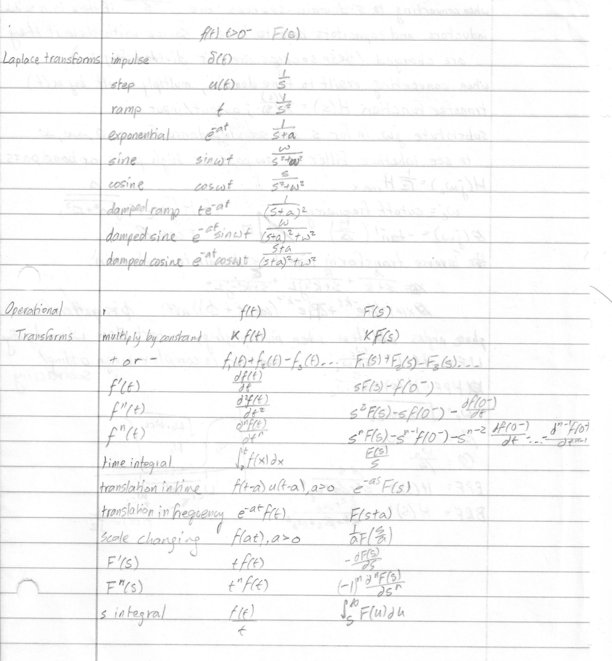 f(t) t>0⁻ F(s)
Laplace transforms impulse δ(t) 1
step u(t) 1/s
ramp t 1/s²
exponential e^-at 1/(s+a)
sine sinωt ω/(s²+ω²)
cosine cosωt s/(s²+ω²)
damped ramp te^-at 1/(s+a)²
damped sine e^-at sinωt ω/((s+a)²+ω²)
damped cosine e^-at cosωt (s+a)/((s+a)²+ω²)
Operational f(t) F(s)
Transforms multiply by constant K f(t) KF(s)
+ or - f₁(t)+f₂(t)-f₃(t)... F₁(s)+F₂(s)-F₃(s)...
f'(t) df(t)/dt sF(s)-f(0⁻)
f"(t) d²f(t)/dt² s²F(s)-sf(0⁻)-df(0⁻)/dt
fⁿ(t) dⁿf(t)/dtⁿ sⁿF(s)-sⁿ⁻¹f(0⁻)-sⁿ⁻² df(0⁻)/dt -...- dⁿ⁻¹f(0⁻)/dtⁿ⁻¹
time integral ∫₀ᵗ f(x)dx F(s)/s
translation in time f(t-a)u(t-a), a>0 e^-as F(s)
translation in frequency e^-at f(t) F(s+a)
scale changing f(at), a>0 1/a F(s/a)
F'(s) tf(t) -dF(s)/ds
Fⁿ(s) tⁿf(t) (-1)ⁿ dⁿF(s)/dsⁿ
s integral f(t)/t ∫ₛ^∞ F(u)du